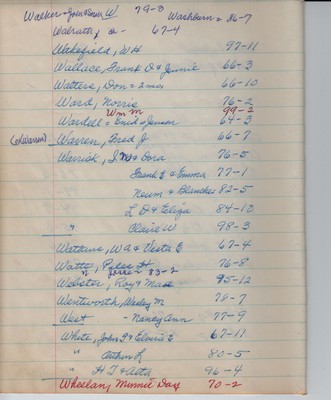 Walker - John & Susan W 79-3 Washburn = 86-7
Walrath, 67-4
Wakefield, W H 97-11
Wallace, Frank O & Jennie 66-3
Watters, Don = 2 mos 66-10
Ward, Norris 76-2
Wm M 99-2
Wardell = Enid & Jensen 64-3
Warren, Fred J 66-7
Warrick, J M & Dora 76-5
Frank E & Emma 77-1
Neum & Blanche 82-5
L D & Eliza 84-13
" Claire W 98-3
Watkins, W A & Vesta E 67-4
Watts, Pyles H. 76-8
" 83-2
Webster, Roy & MaE 95-12
Wentworth, Wesley M 78-7
West - Nancy Ann 77-9
White, John F & Elvira E 67-11
" Arthur L 80-5
" H T & Alta 96-4
Wheelan, Minnie Day 70-2